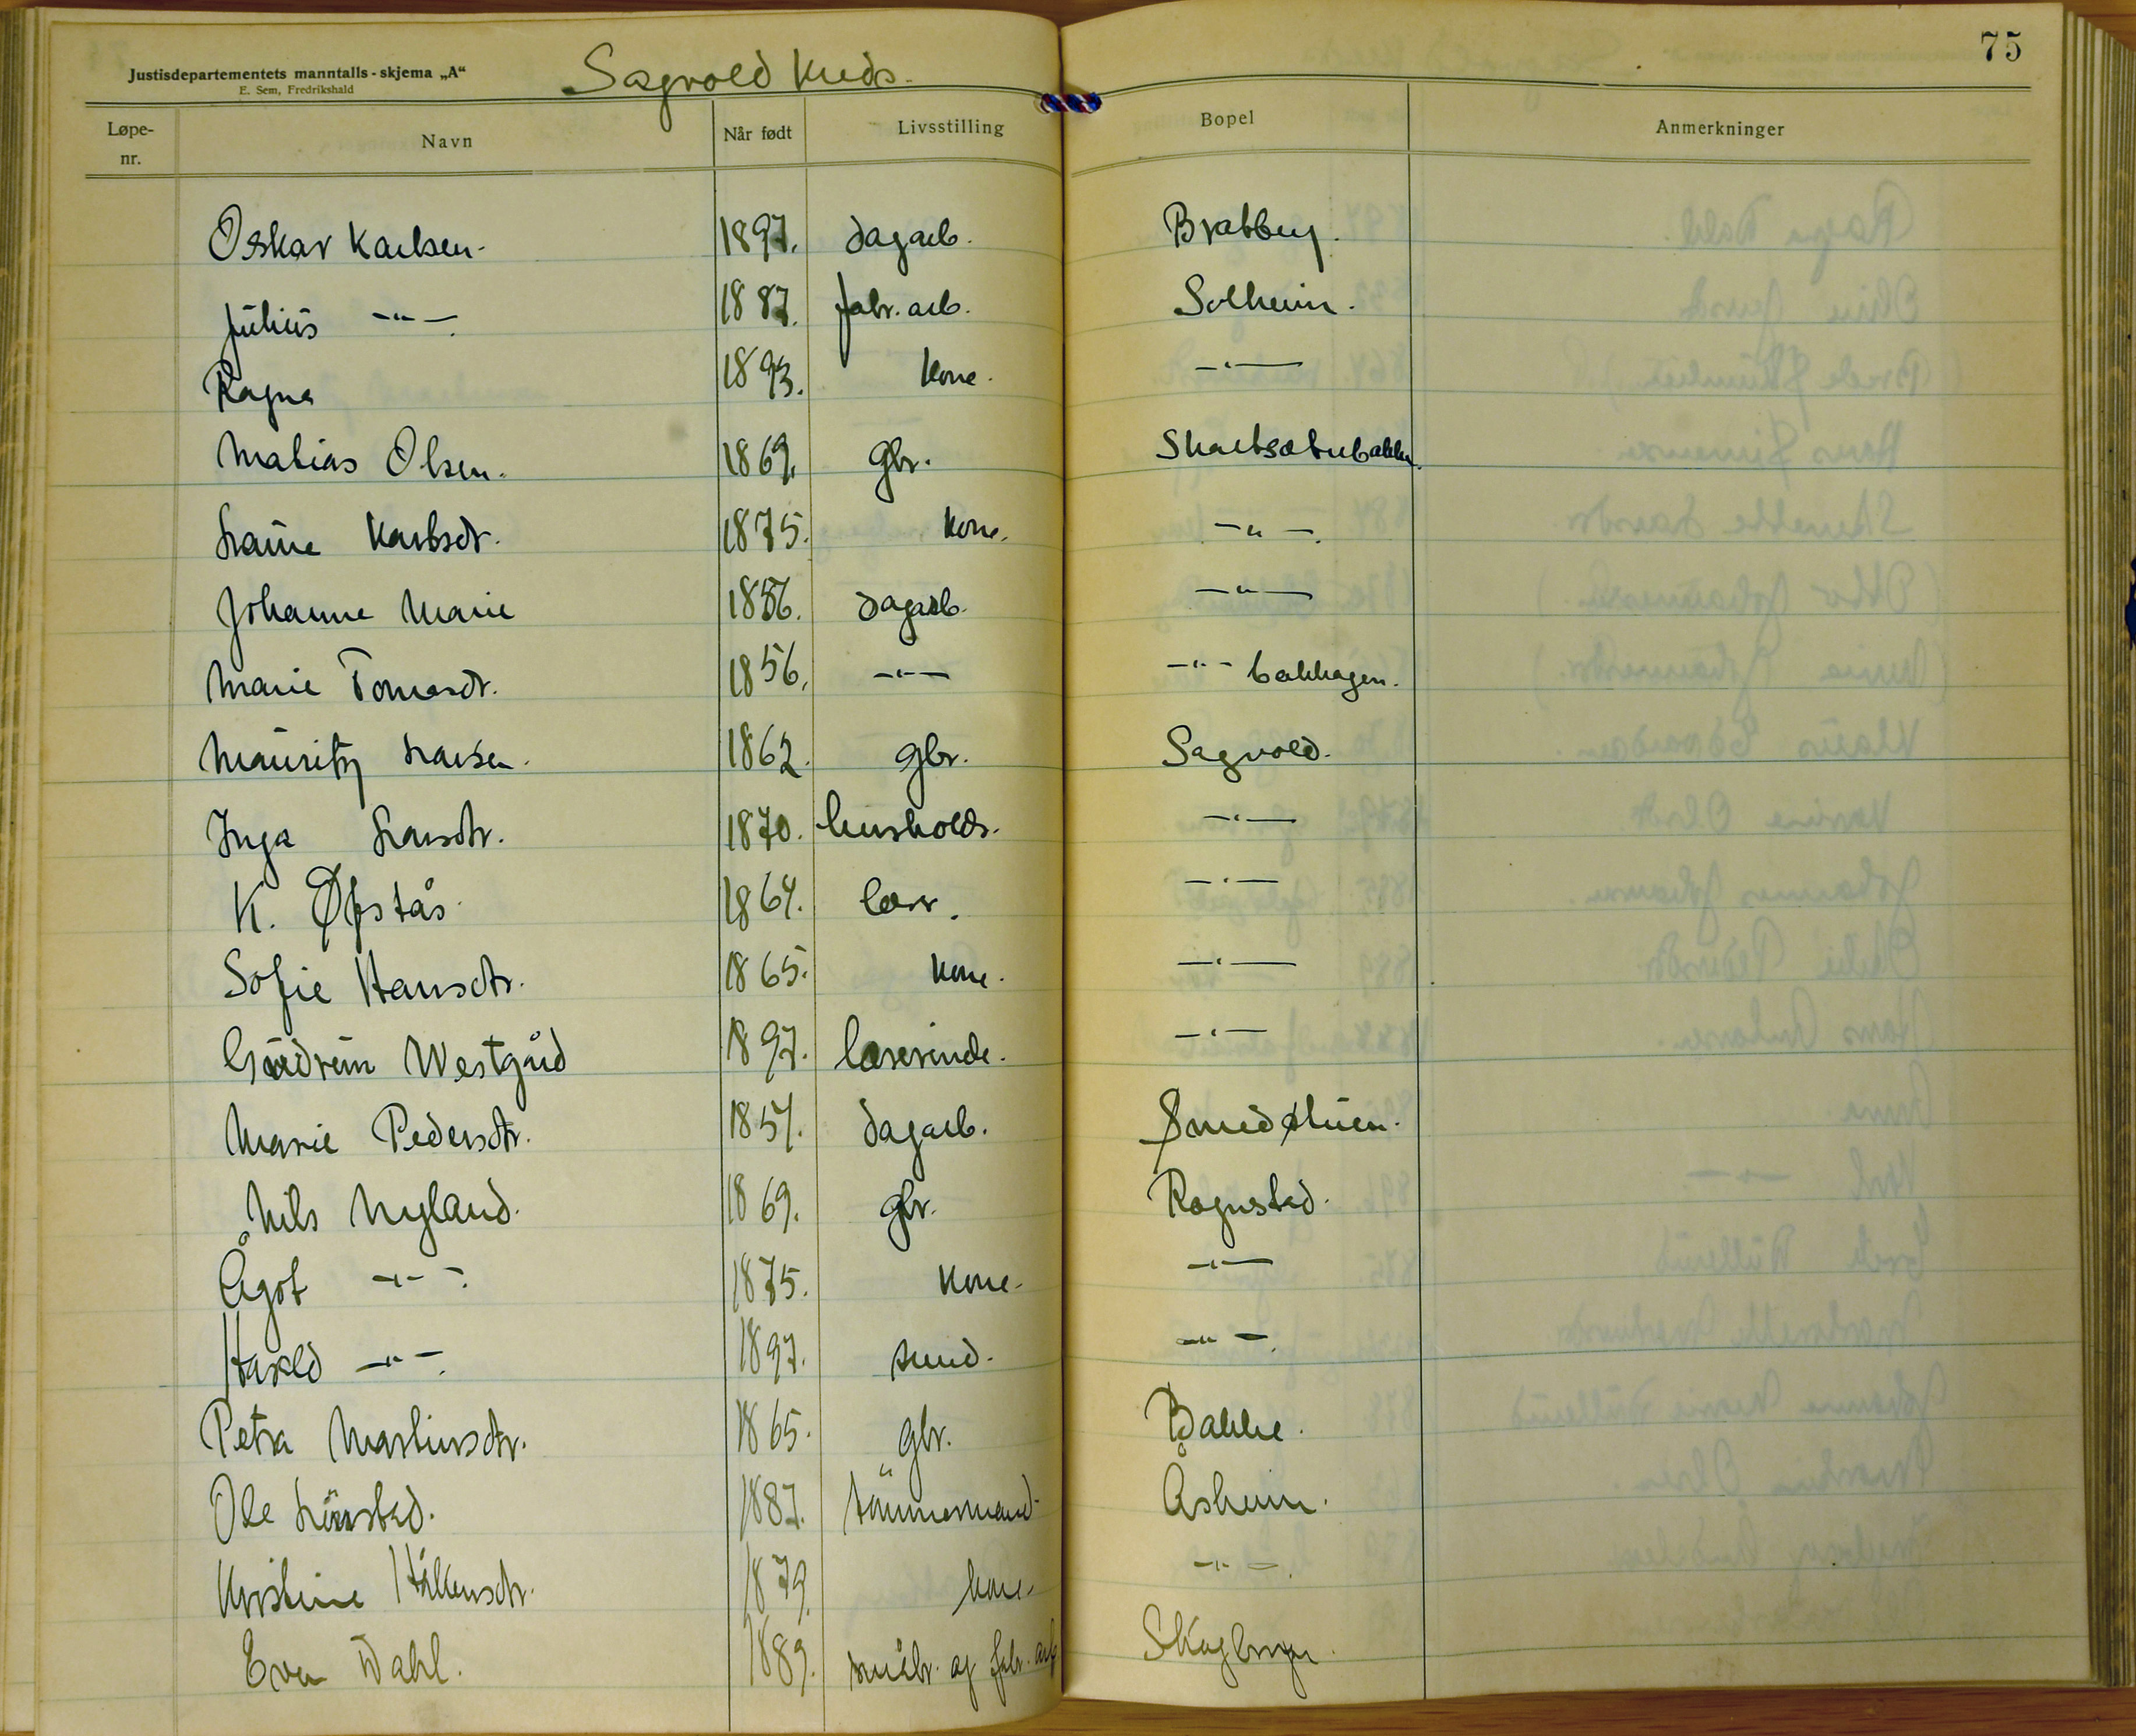 75
Justisdepartementets manntalls-skjema „A“
E. Sem, Fredrikshald
Sagvold kreds.
Løpe-nr. Navn Når født Livsstilling Bopel Anmerkninger
Oskar Karlsen. 1897. dagarb. Bratberg.
Julius —"— 1887. fabr. arb. Solheim.
Ragna 1893. kone. —"—
Matias Olsen. 1869. gbr.
Laura Karlsdtr. 1875. kone. —"—.
Johanne Marie 1856. dagarb. —"—
Marie Tomasdr. 1856. —"— —"— bakhagen.
Mauritz Larsen. 1862. gbr. Sagvold.
Inga Larsdtr. 1870. husholds. —"—
K. Øfstås 1864. lær. —"—
Sofie Hansdtr. 1865. kone. —"—
Gudrun Westgård 1897. lærerinde. —"—
Marie Pedersdtr. 1854. dagarb.
Nils Nyland. 1869. gbr. Rognstad.
Ågot —"—. 1875. kone. —"—
Harald —"—. 1897. smed. —"—.
Petra Martinsdtr. 1865. gbr. Bakke.
Ole 1887. tømmermand Åsheim.
Kristine Håkensdtr. 1879. kone. —"—.
Even Dahl. 1889. småbr. og fabr. arb